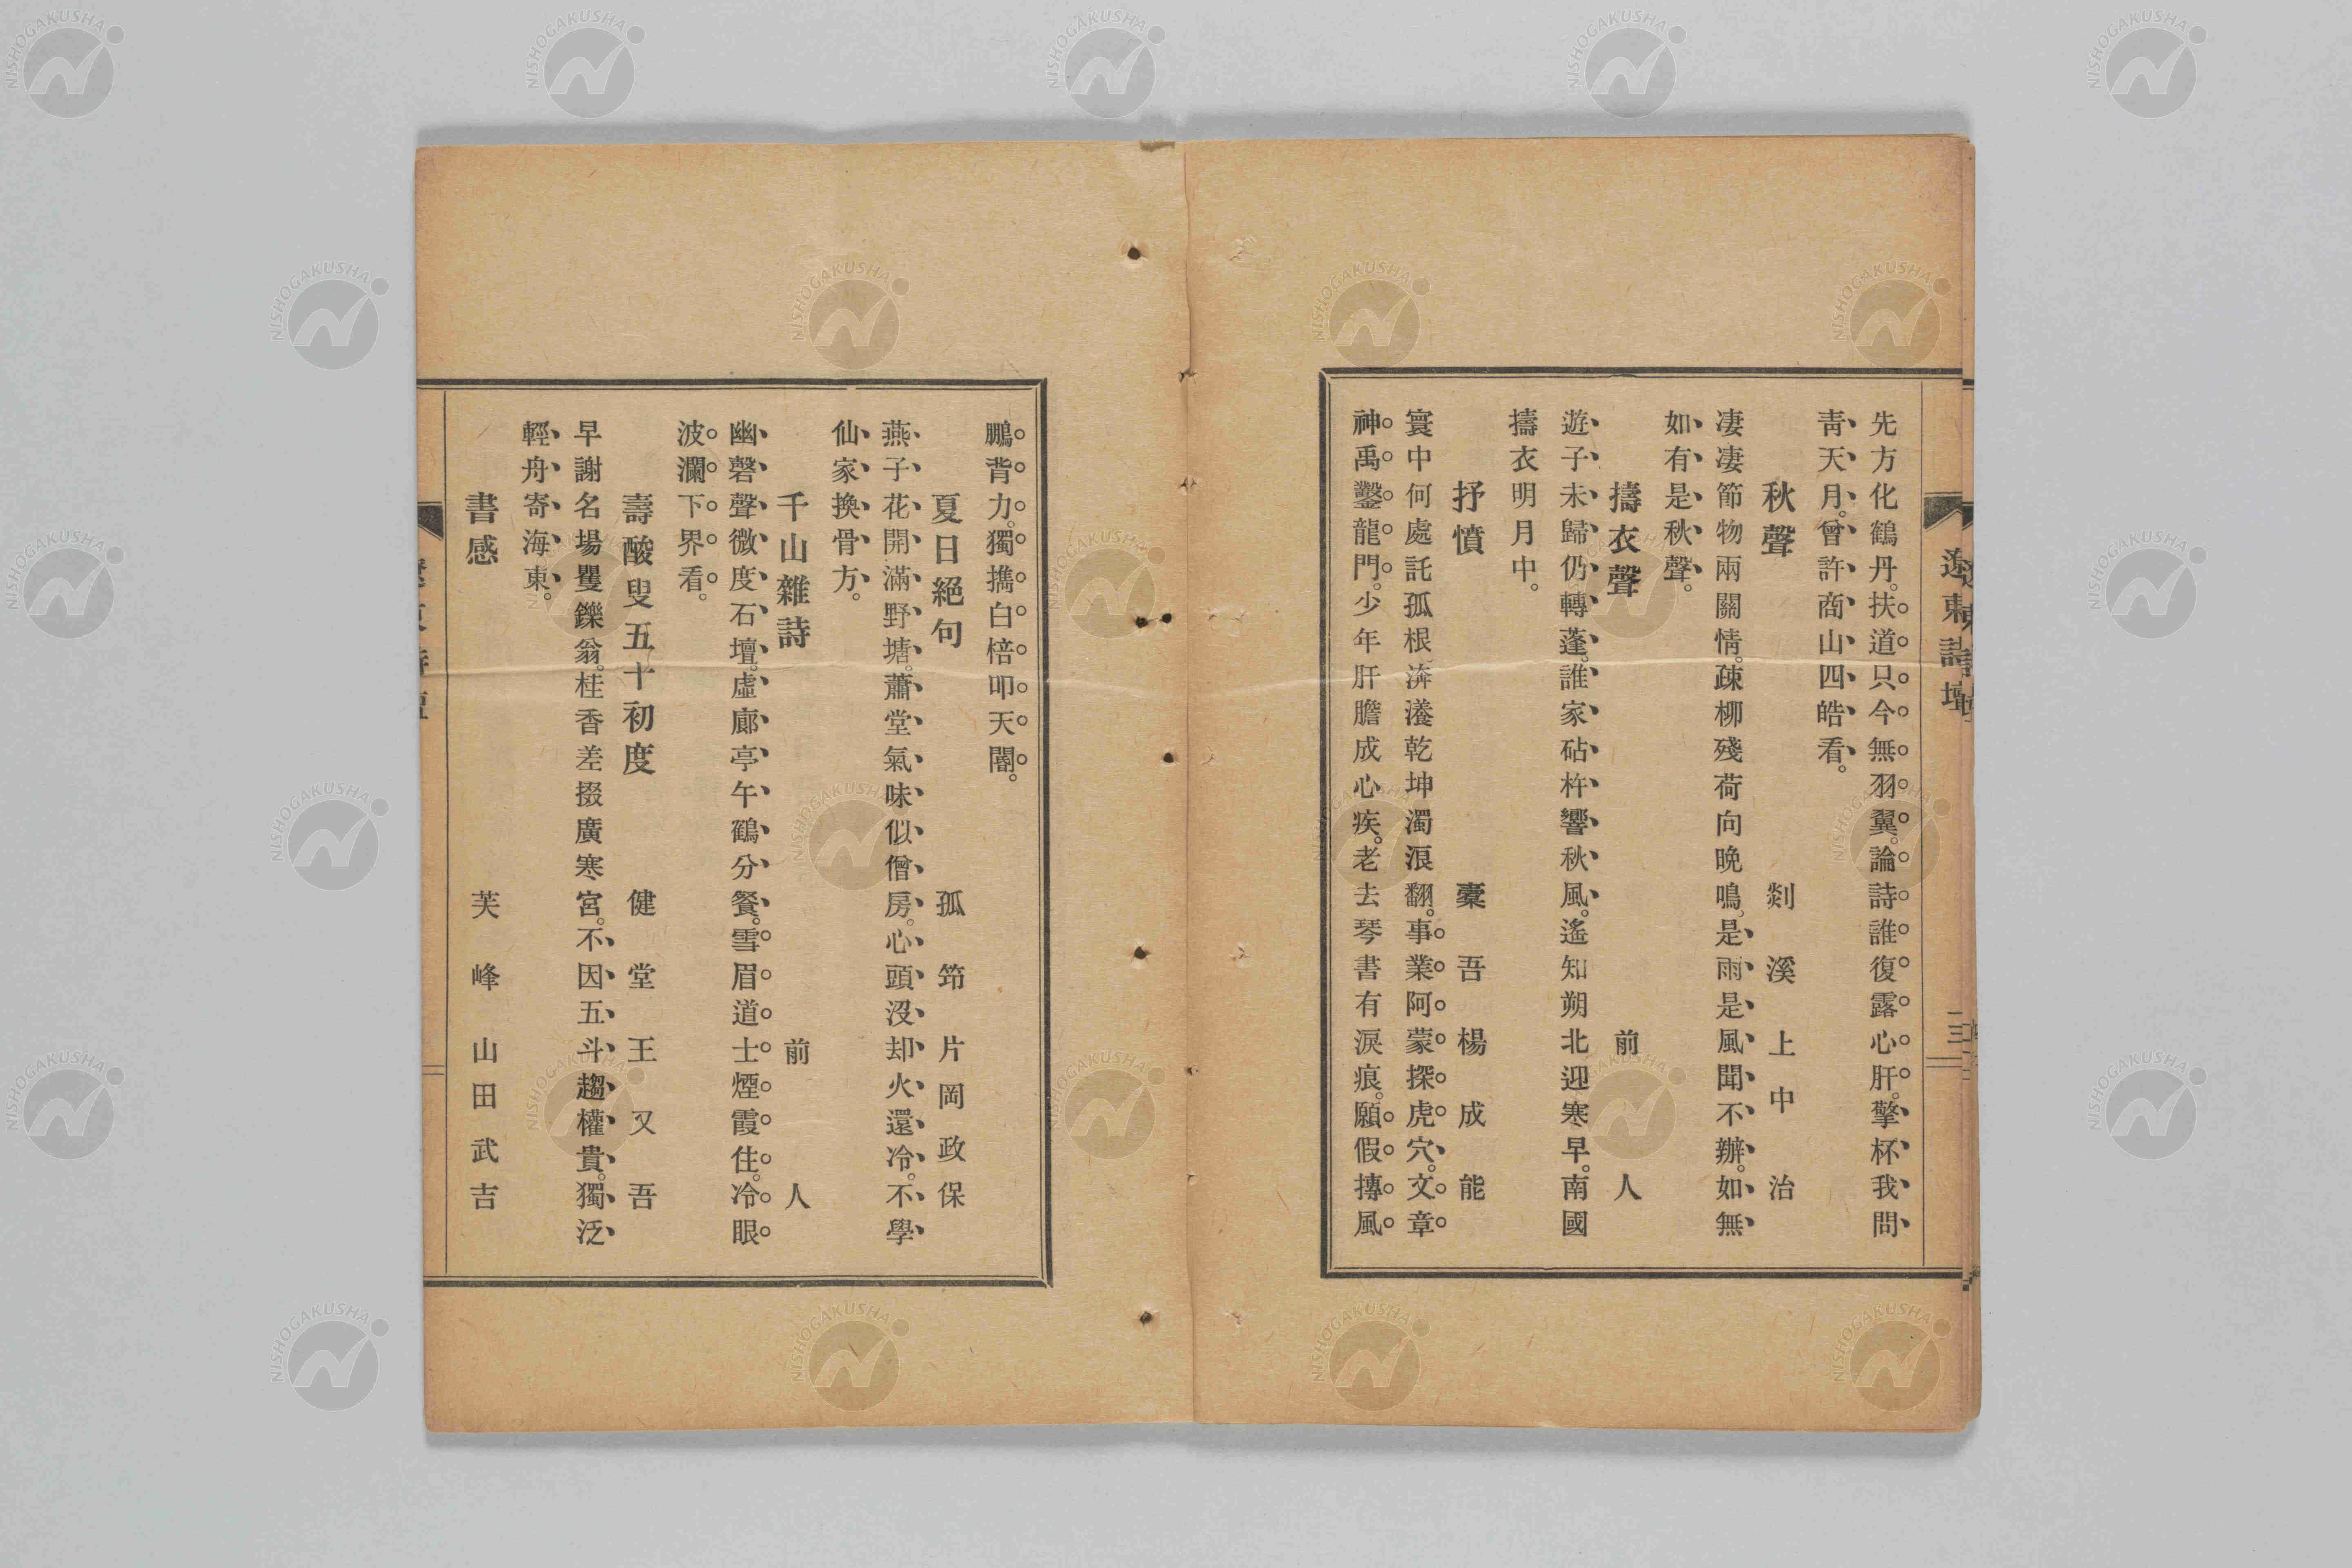 遼東詩壇
先方化鶴丹。扶道只今無羽翼。論詩誰復露心肝。擎杯我問
靑天月。曾許商山四皓看。
秋聲　剡溪　上中治
凄凄節物兩關情。疎柳殘荷向晚鳴。是雨是風聞不辦。如無
如有是秋聲。
擣衣聲　前人
遊子未歸仍轉蓬。誰家砧杵響秋風。遙知朔北迎寒早。南國
擣衣明月中。
抒憤　槖吾　楊成能
寰中何處託孤根。渀瀁乾坤濁浪翻。事業阿蒙探虎穴。文章
神禹鑿龍門。少年肝膽成心疾。老去琴書有淚痕。願假摶風
鵬背力。獨攜白棓叩天閽。
夏日絕句　孤筇　片岡政保
燕子花開滿野塘。蕭堂氣味似僧房。心頭沒却火還冷。不學
仙家換骨方。
千山雜詩　前人
幽磬聲微度石壇。虛廊亭午鶴分餐。雪眉道士煙霞住。冷眼
波瀾下界看。
壽酸叟五十初度　健堂　王又吾
早謝名場矍鑠翁。桂香差掇廣寒宮。不因五斗趨權貴。獨泛
輕舟寄海東。
書感　芙峰　山田武吉
NISHOGAKUSHA